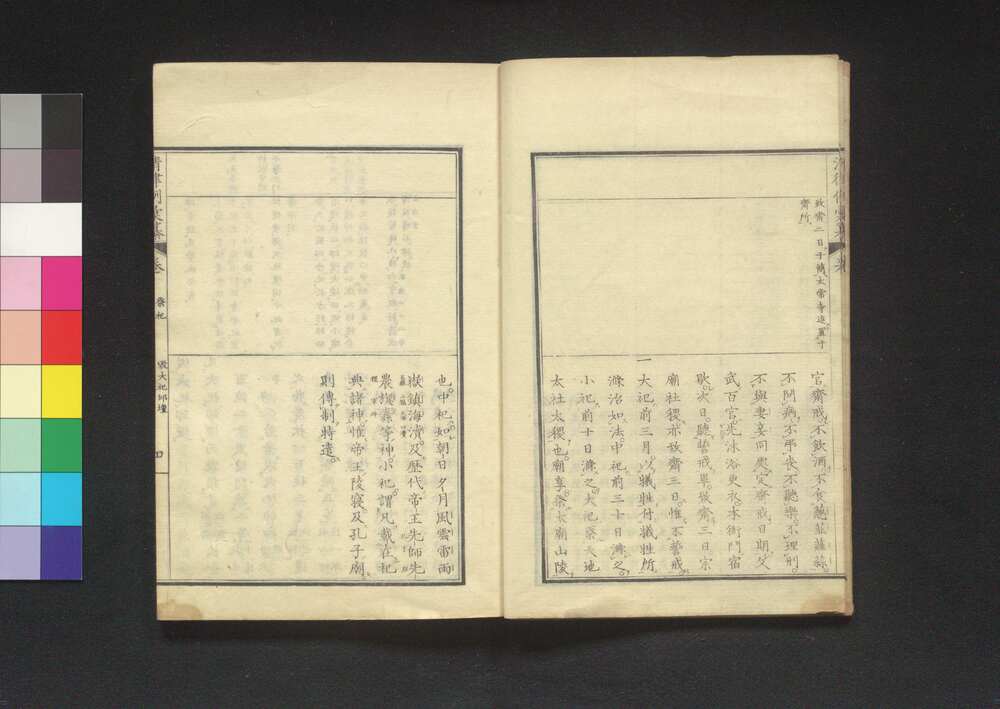 致齋二日于儀太常寺進置于
齋所
官齋戒不飲酒不食葱韮薤蒜
不問病不弔喪不聽樂不理刑
不與妻妾同處定齋戒日期文
武百官先沐浴更衣本衙門宿
歇次日聽誓戒畢致齋三日宗
廟社稷亦致齋三日惟不誓戒
一
大祀前三月以犧牲付犧牲所
滌治如法中祀前三十日滌之
小祀前十日滌之大祀祭天地
太社太稷也廟享祭太廟山陵
也中祀如朝日夕月風雲雷雨
嶽鎮海瀆及歴代帝王先師先
農旗纛等神小祀謂凡載在祀
典諸神惟帝王陵寢及孔子廟
則傳制特遣
清律例彙纂
卷
祭祀
毀大祀邱壇
四